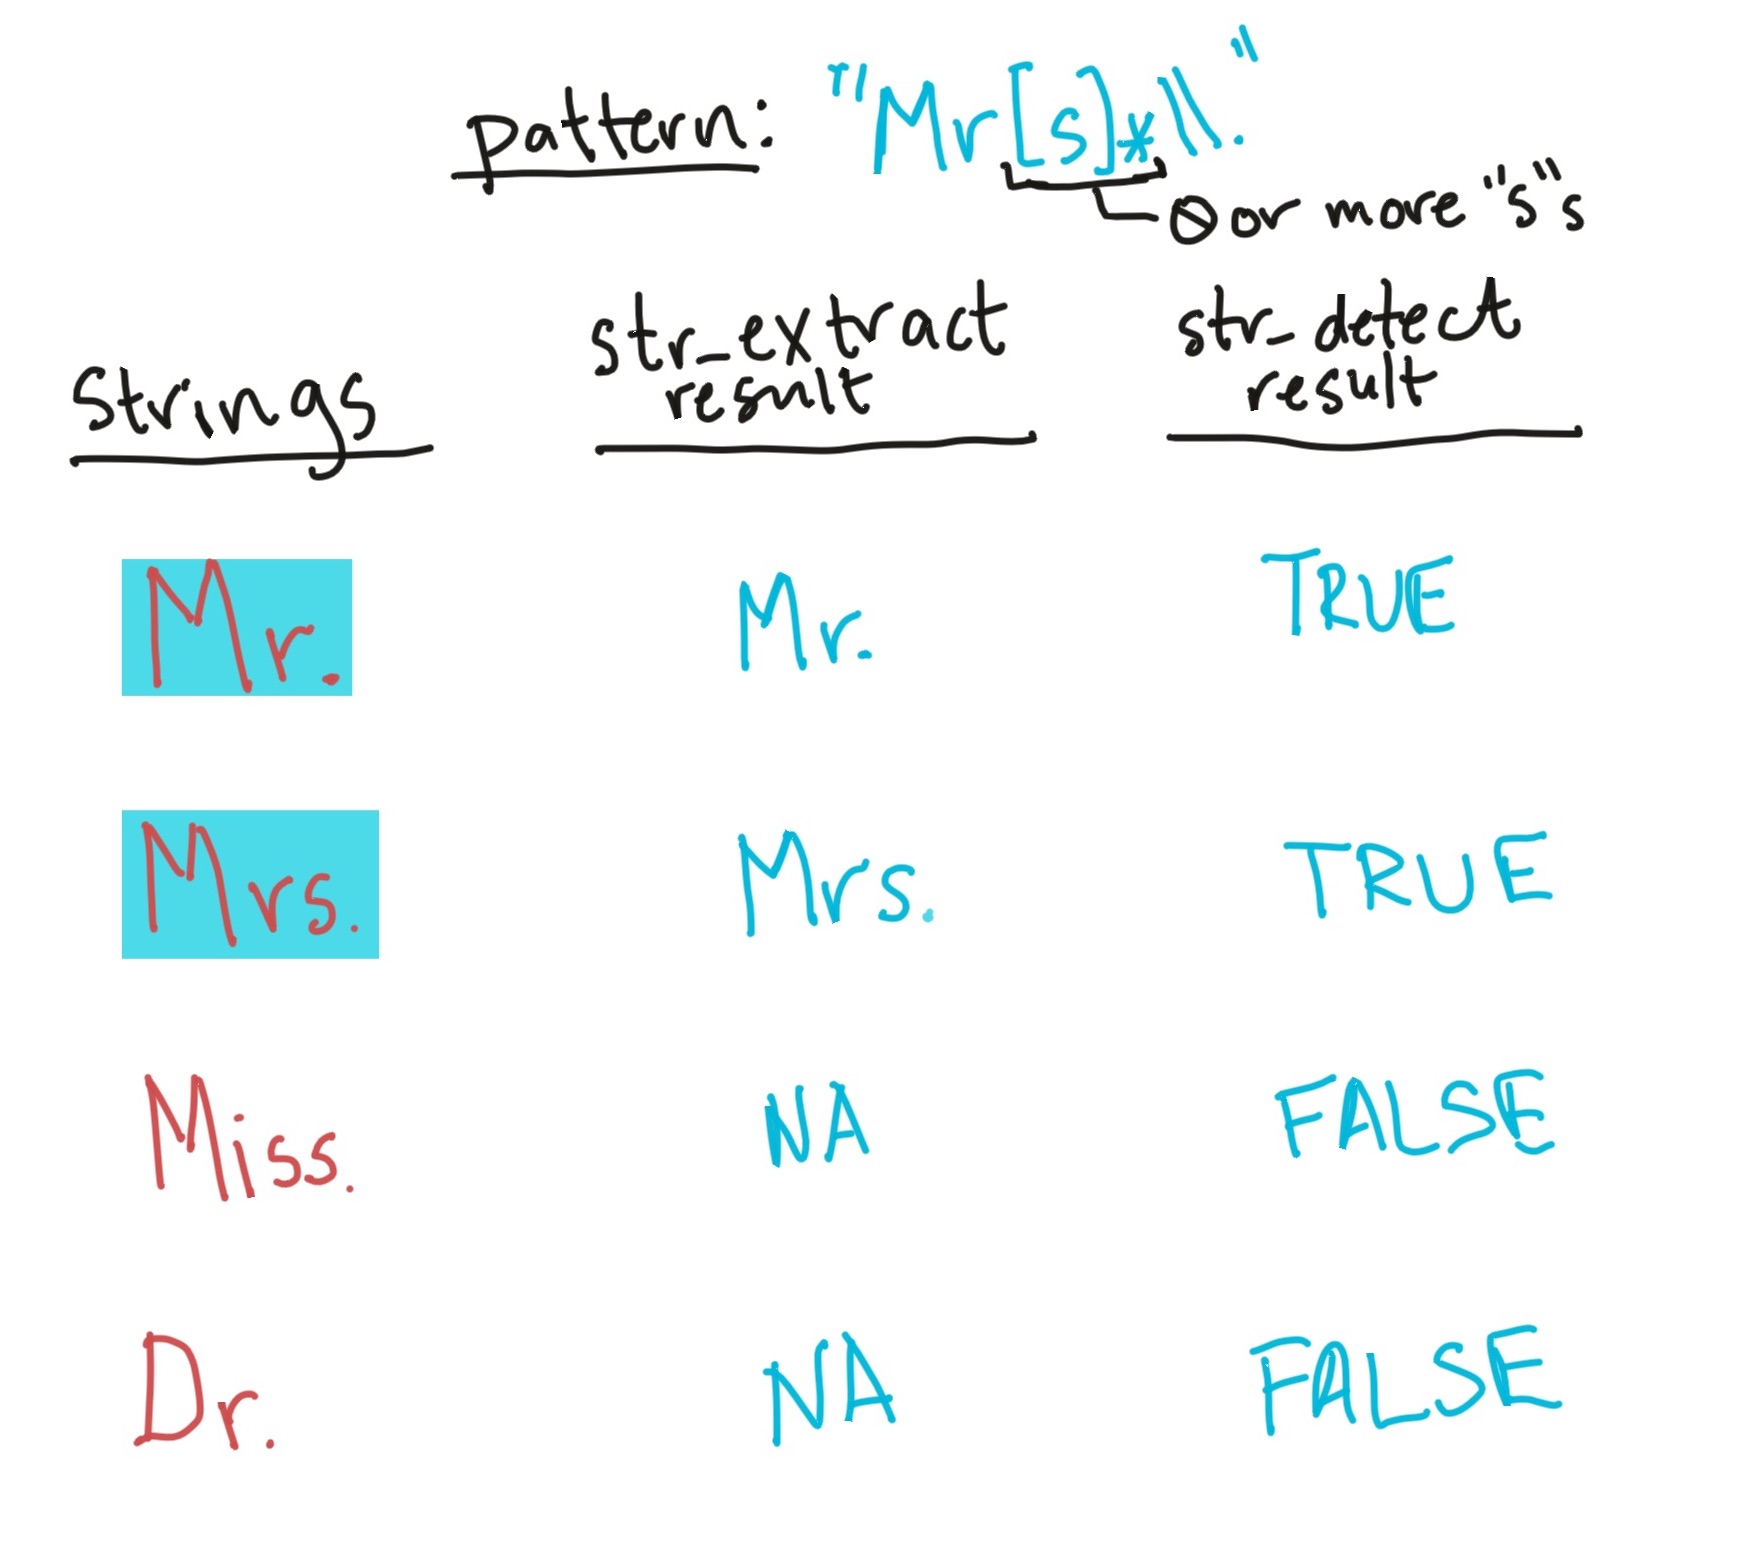 pattern: "Mr[s]*\\."
0 or more "s"s
strings str_extract result str_detect result
Mr. Mr. TRUE
Mrs. Mrs. TRUE
Miss. NA FALSE
Dr. NA FALSE